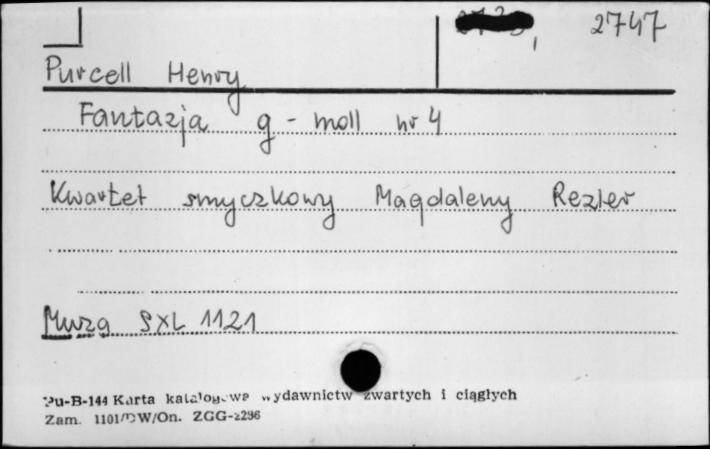 2747
Purcell Henry
Fantazja g-moll nr 4
Kwartet smyczkowy Magdaleny Rezler
Muza SXL 1121
Pu-B-144 Karta katalogowa wydawnictw zwartych i ciągłych
Zam. 1101/DW/On. ZGG-2296